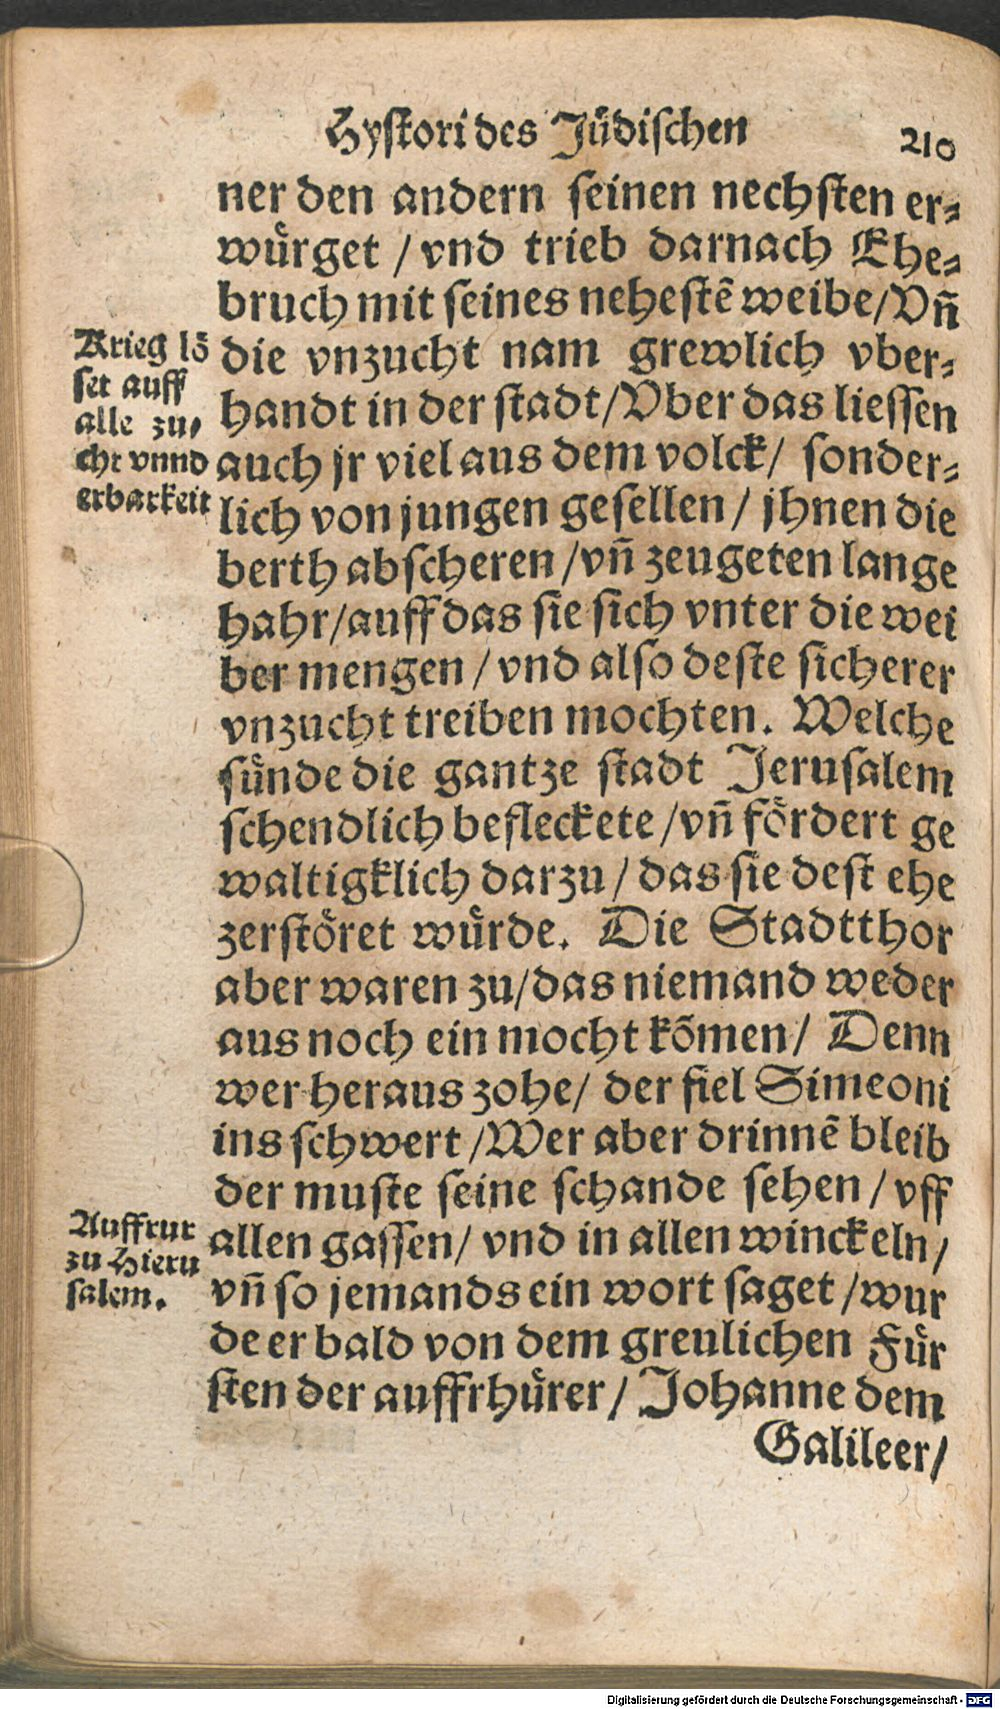 Hystori des Jüdischen
210
ner den andern seinen nechsten er⸗
würget / vnd trieb darnach Ehe⸗
bruch mit seines nehestẽ weibe/Vñ
die vnzucht nam grewlich vber⸗
handt in der stadt/Vber das liessen
auch jr viel aus dem volck/ sonder⸗
lich von jungen gesellen / jhnen die
berth abscheren /vñ zeugeten lange
hahr/auff das sie sich vnter die wei
ber mengen / vnd also deste sicherer
vnzucht treiben mochten. Welche
sünde die gantze stadt Jerusalem
schendlich befleckete /vñ fördert ge
waltigklich darzu / das sie dest ehe
zerstöret würde. Die Stadtthor
aber waren zu/das niemand weder
aus noch ein mocht kõmen/ Denn
wer heraus zohe/ der fiel Simeoni
ins schwert /Wer aber drinnẽ bleib
der muste seine schande sehen / vff
allen gassen/ vnd in allen winckeln/
vñ so jemands ein wort saget /wur
de er bald von dem greulichen Für
sten der auffrhürer / Johanne dem
Galileer/
Krieg lö
set auff
alle zu⸗
cht vnnd
erbarkeit
Auffrur
zu Hieru
salem.
Digitalisierung gefördert durch die Deutsche Forschungsgemeinschaft - DFG